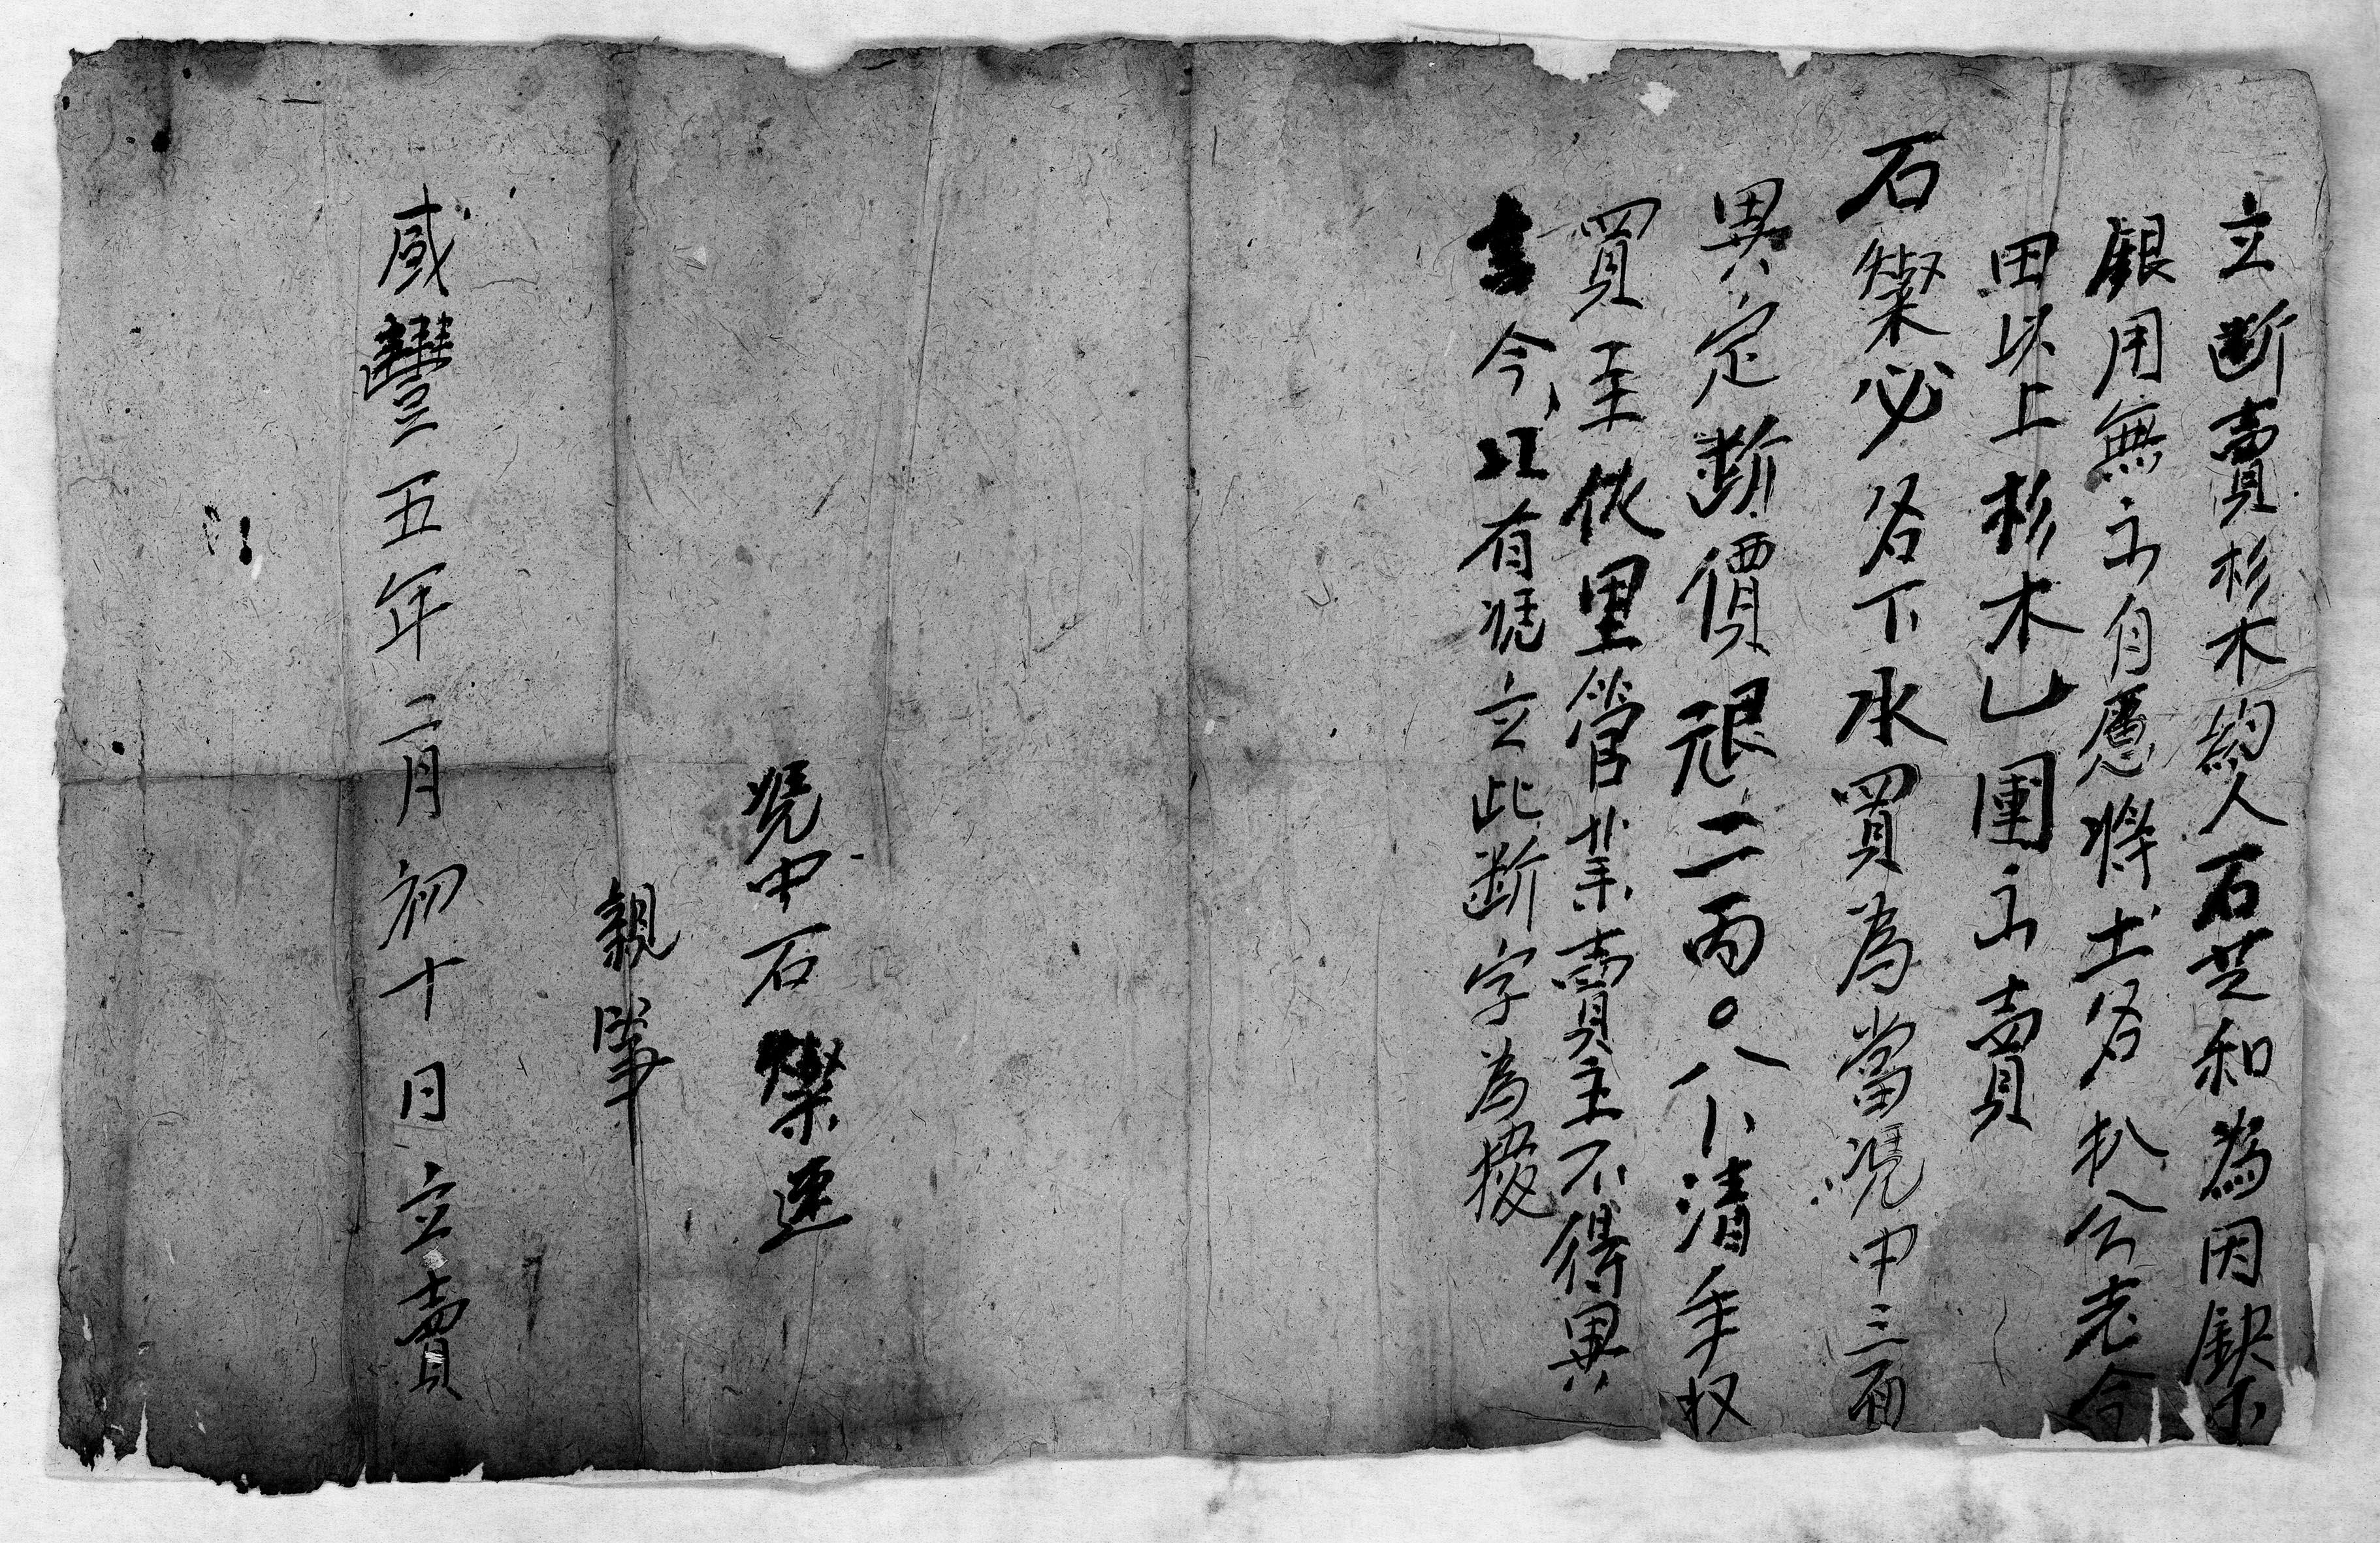 立断賣杉木約人石芝和為因缺少
銀用無出自愿將土名扒公老令
田以上杉木山團出賣
石燦必名下承買為當凭中三面
異定断價艮二両○八卜清手收
買主依里管業賣主不得異
言今口有凴立此断字為據
凴中石燦连
親筆
咸豐五年二月初十日立賣